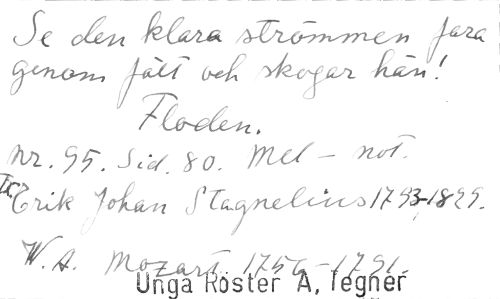 Se den klara strömmen fara
genom fält och skogar hän!
Floden.
Nr. 95. Sid. 80. Mel - not.
Tr. Erik Johan Stagnelius 1793-1829.
W. A. Mozart. 1756-1791.
Unga Röster A, Tegnér